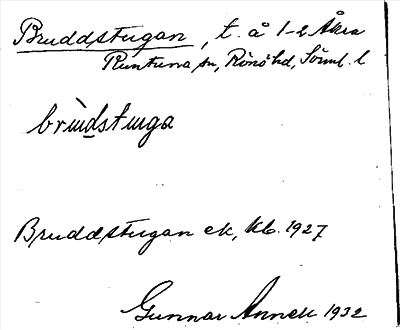 Bruddstugan, t. å 1-2 Åkra
Runtuna sn, Rönö hd, Sörml. l
brùdstuga
Bruddstugan ek, Kb. 1927
Gunnar Annell 1932